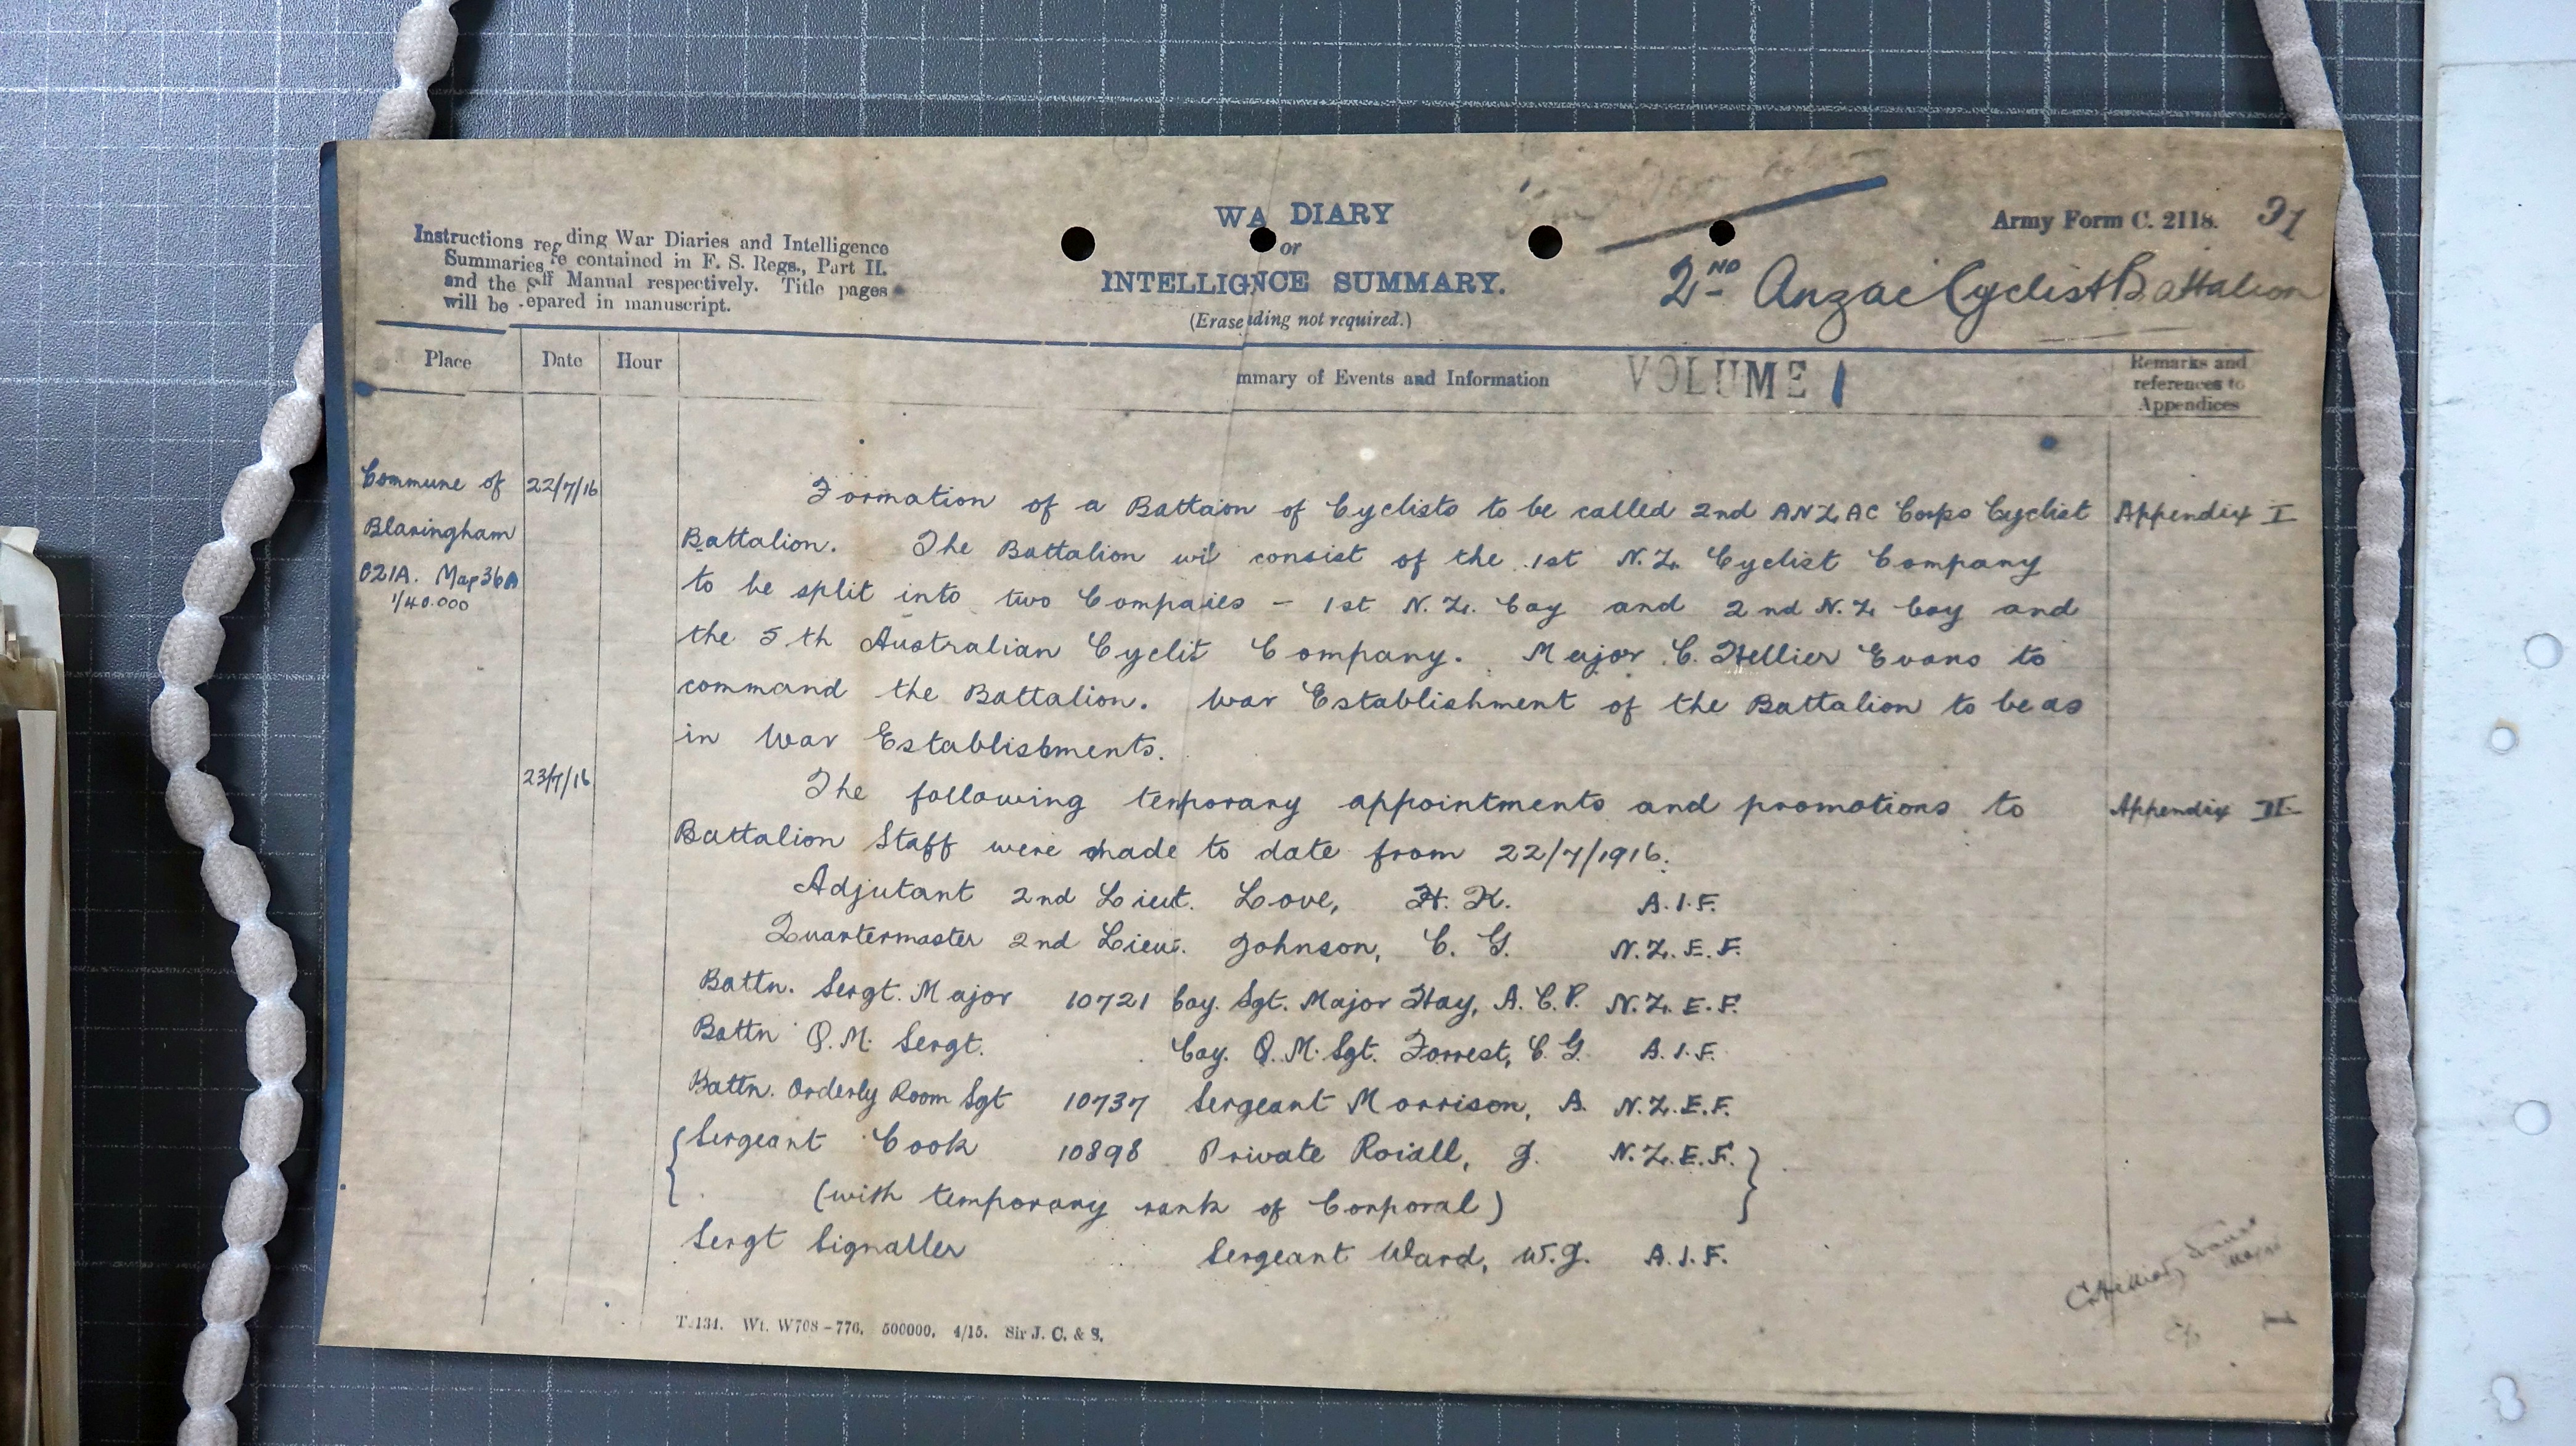 Instructions reg ding War Diaries and Intelligence
Summaries re contained in F. S. Regs., Part II.
and the aff Manual respectively. Title pages
will be epared in manuscript.
WA DIARY
or
INTELLIGNCE SUMMARY.
(Erase ding not required.)
Army Form C. 2118.
91
2ND Anzac Cyclist Battalion
Place
Date
Hour
mmary of Events and Information
VOLUME 1
Remarks and
references to
Appendices
Commune of
Blaringham
C21A. Map 36A
1/40.000
22/7/16
Formation of a Battaion of Cyclists to be called 2nd ANZAC Corps Cyclist
Appendix I
Battalion. The Battalion wil consist of the 1st N.Z. Cyclist Company
to be split into two Compaies - 1st N.Z. Coy and 2nd N.Z Coy and
the 5th Australian Cyclit Company. Major C. Hellier Evans to
command the Battalion. War Establishment of the Battalion to be as
in War Establishments.
23/7/16
The following temporary appointments and promotions to
Appendix II
Battalion Staff were made to date from 22/7/1916.
Adjutant 2nd Lieut. Love, H. K. A.I.F.
Quartermaster 2nd Lieut. Johnson, C. G. N.Z.E.F.
Battn. Sergt. Major 10721 Coy. Sgt. Major Hay, A.C.P. N.Z.E.F.
Battn Q.M. Sergt. Coy. Q.M. Sgt. Forrest, C G. A.I.F.
Battn. Orderly Room Sgt 10737 Sergeant Morrison, A. N.Z.E.F.
{Sergeant Cook 10898 Private Roiall, J. N.Z.E.F.}
(with temporary rank of Corporal)
Sergt Signaller Sergeant Ward, W.J. A.I.F.
1
T.134. Wt. W708-776. 500000. 4/15. Sir J. C. & S.